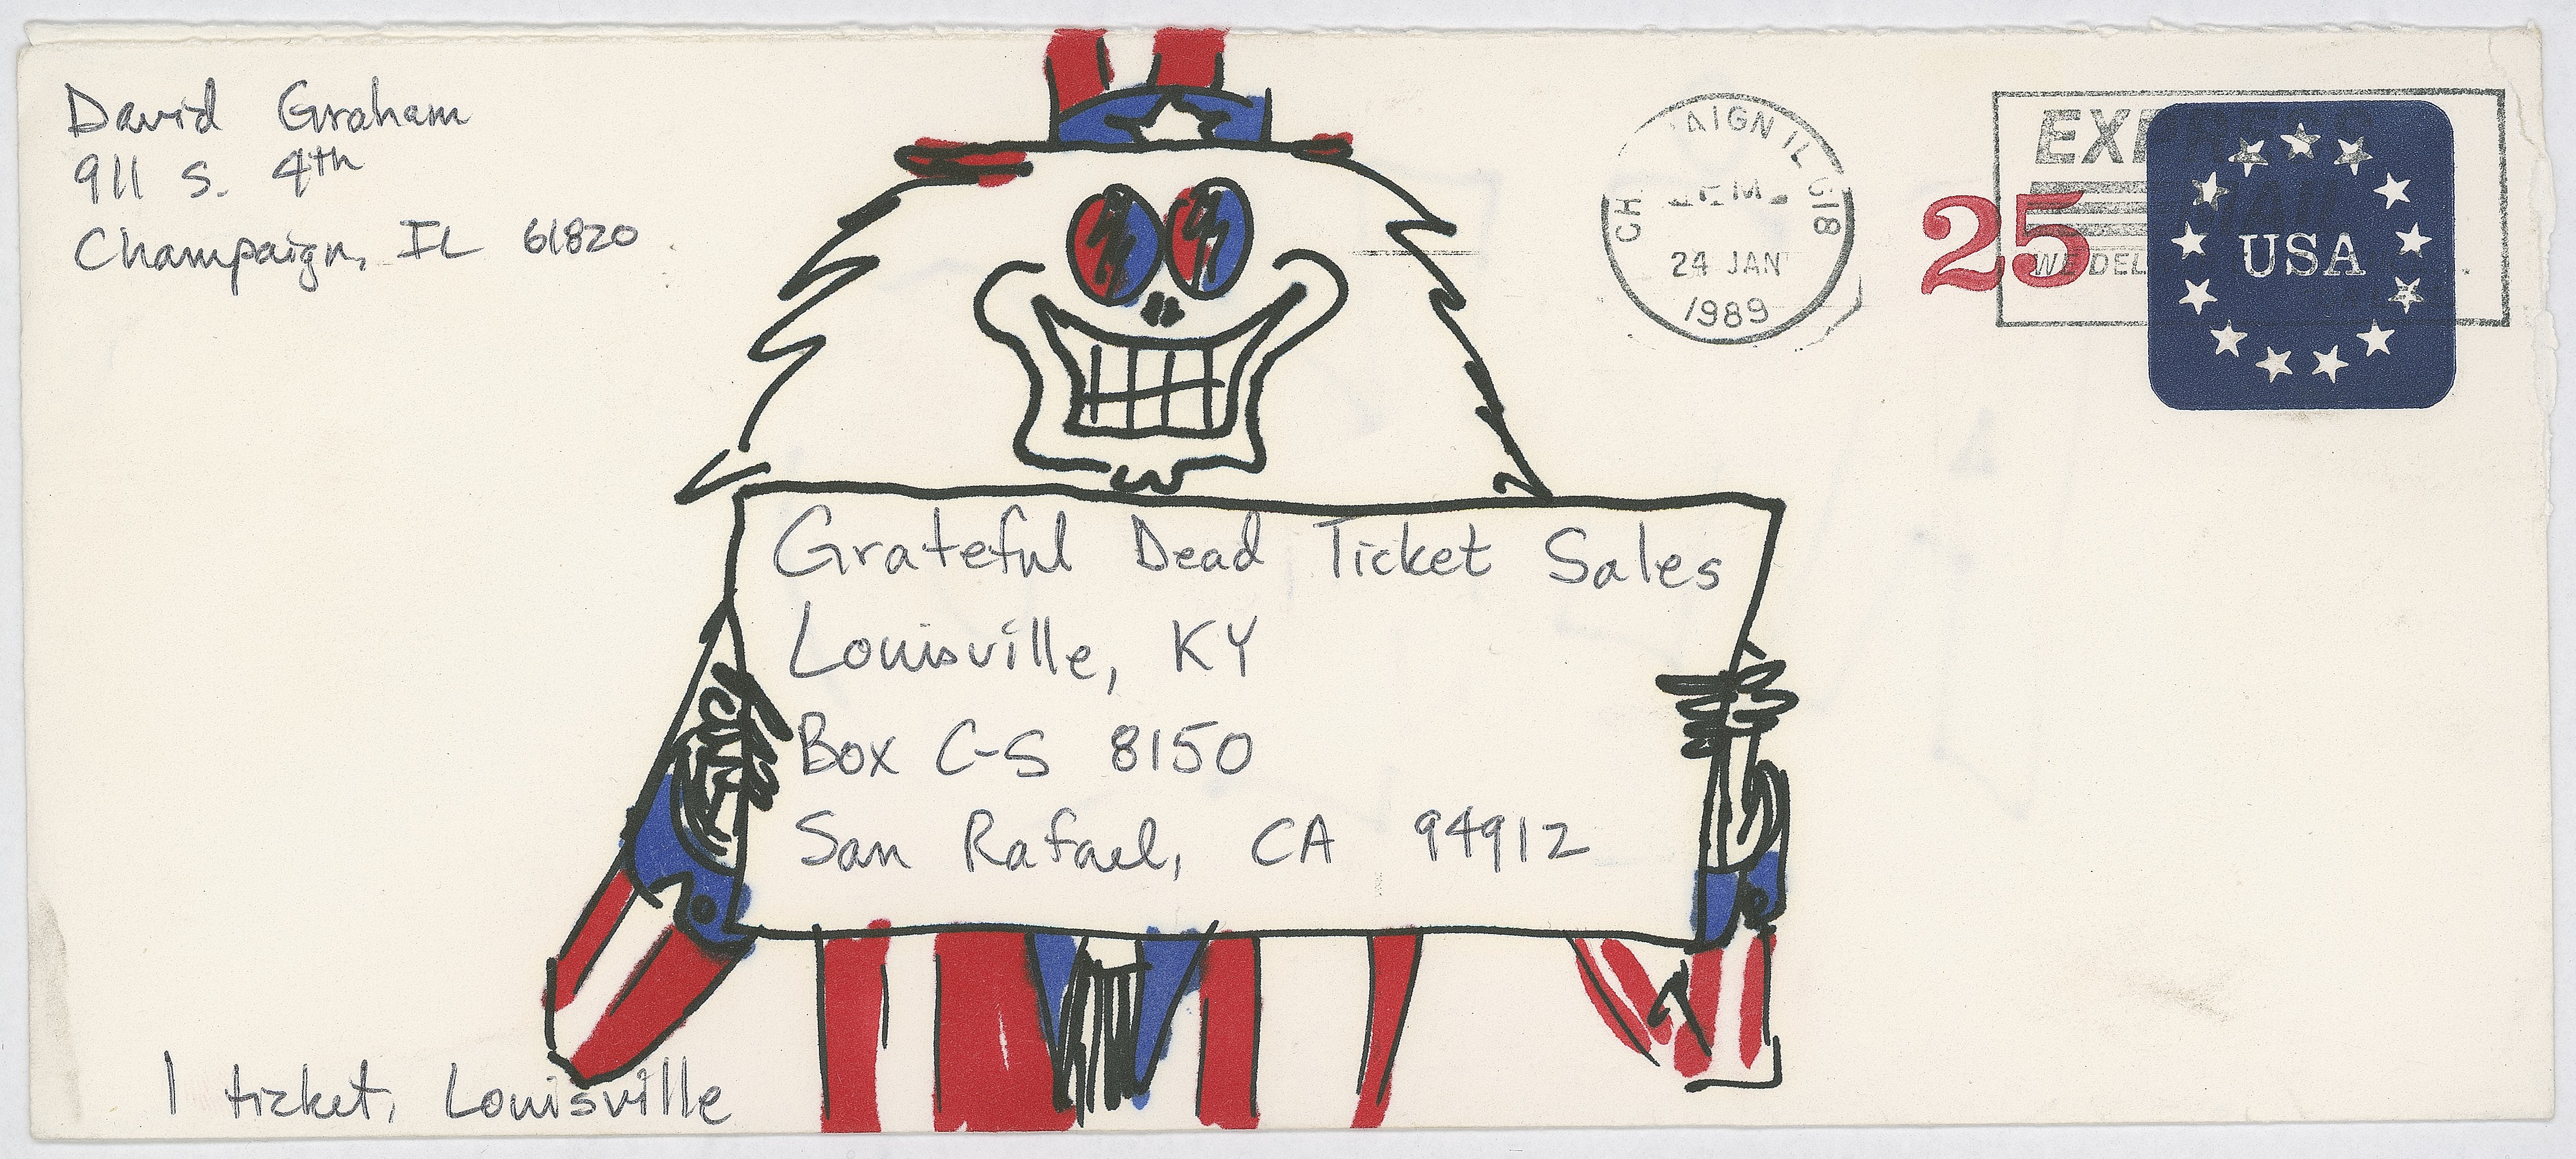 David Graham
911 S. 4th
Champaign, IL 61820
AIGN IL
PM
24 JAN
1989
25
USA
WE DEL
Grateful Dead Ticket Sales
Louisville, KY
Box C-S 8150
San Rafael, CA 94912
1 ticket, Louisville